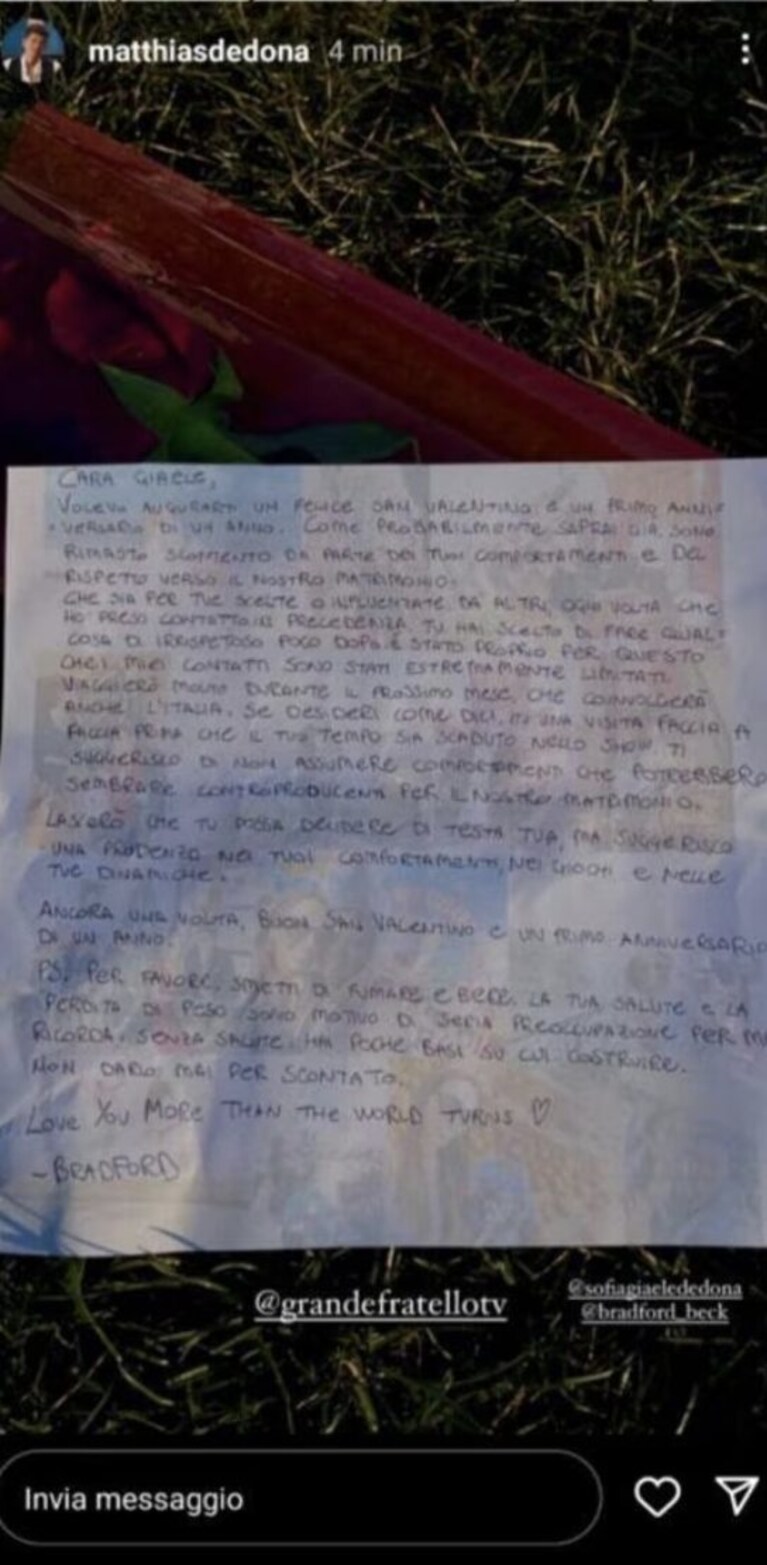 matthiasdedona 4 min
CARA GIAELE,
VOLEVO AUGURARTI UN FELICE SAN VALENTINO E UN PRIMO ANNI-
VERSARIO DI UN ANNO. COME PROBABILMENTE SAPRAI GIÀ, SONO
RIMASTO SGOMENTO DA PARTE DEI TUOI COMPORTAMENTI E DEL
RISPETTO VERSO IL NOSTRO MATRIMONIO.
CHE SIA PER TUE SCELTE O INFLUENTATE DA ALTRI, OGNI VOLTA CHE
HO PRESO CONTATTO IN PRECEDENZA, TU HAI SCELTO DI FARE QUAL-
COSA DI IRRISPETTOSO POCO DOPO. È STATO PROPRIO PER QUESTO
CHE I MIEI CONTATTI SONO STATI ESTREMAMENTE LIMITATI.
VIAGGIERÒ MOLTO DURANTE IL PROSSIMO MESE, CHE COINVOLGERÀ
ANCHE L'ITALIA. SE DESIDERI COME DICI, UNA VISITA FACCIA A
FACCIA PRIMA CHE IL TUO TEMPO SIA SCADUTO NELLO SHOW, TI
SUGGERISCO DI NON ASSUMERE COMPORTAMENTI CHE POTREBBERO
SEMBRARE CONTROPRODUCENTI PER IL NOSTRO MATRIMONIO.
LASCERÒ CHE TU POSSA DECIDERE DI TESTA TUA, MA SUGGERISCO
UNA PRUDENZA NEI TUOI COMPORTAMENTI, NEI GIOCHI E NELLE
TUE DINAMICHE.
ANCORA UNA VOLTA, BUON SAN VALENTINO E UN PRIMO ANNIVERSARIO
DI UN ANNO.
PS. PER FAVORE, SMETTI DI FUMARE E BERE. LA TUA SALUTE E LA
PERDITA DI PESO SONO MOTIVO DI SERIA PREOCCUPAZIONE PER ME
RICORDA, SENZA SALUTE HAI POCHE BASI SU CUI COSTRUIRE.
NON DARLO MAI PER SCONTATO.
LOVE YOU MORE THAN THE WORLD TURNS ♡
-BRADFORD
@grandefratellotv
@sofiagiaelededona
@bradford_beck
Invia messaggio